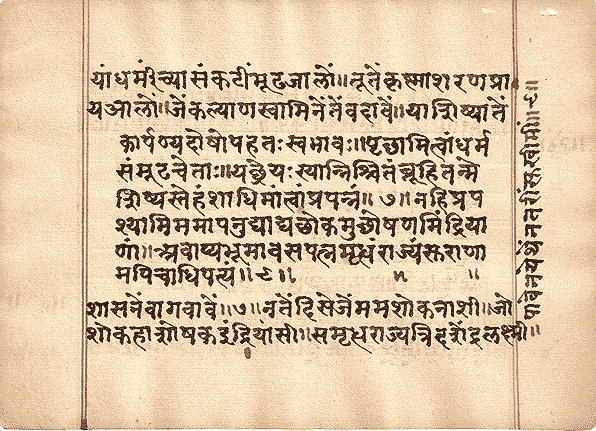 यांधर्माच्या संकटीं मूढ जालों॥ तूतें कृष्णा शरण प्रा
य आलों॥ जें कल्याण स्वामिनें तें वदावें॥ या शिष्यातें
कार्पण्यदोषोपहतः स्वभावः॥ पृछामि त्वां धर्म
संमूढचेताः॥ यछ्रेयः स्यान्निश्चितं ब्रूहि तन्मे
शिष्यस्तेहं शाधि मां त्वां प्रपन्नं॥ ७॥ नहि प्रप
श्यामि ममापनुद्याद्यछोकमुछोषणमिंद्रिया
णां॥ अवाप्य भूमावसपत्नमृधं राज्यं सुराणा
मपि चाधिपत्य॥ ८॥ ॥ ॥
शासनें वागवावें॥ ७॥ न तें दिसे जें मम शोकनाशी॥ जो
शोक हा शोषक इंद्रियांसी॥ समृध राज्य त्रिदशेंद्रलक्ष्मी॥
न तरी सुखी मी॥ ८॥